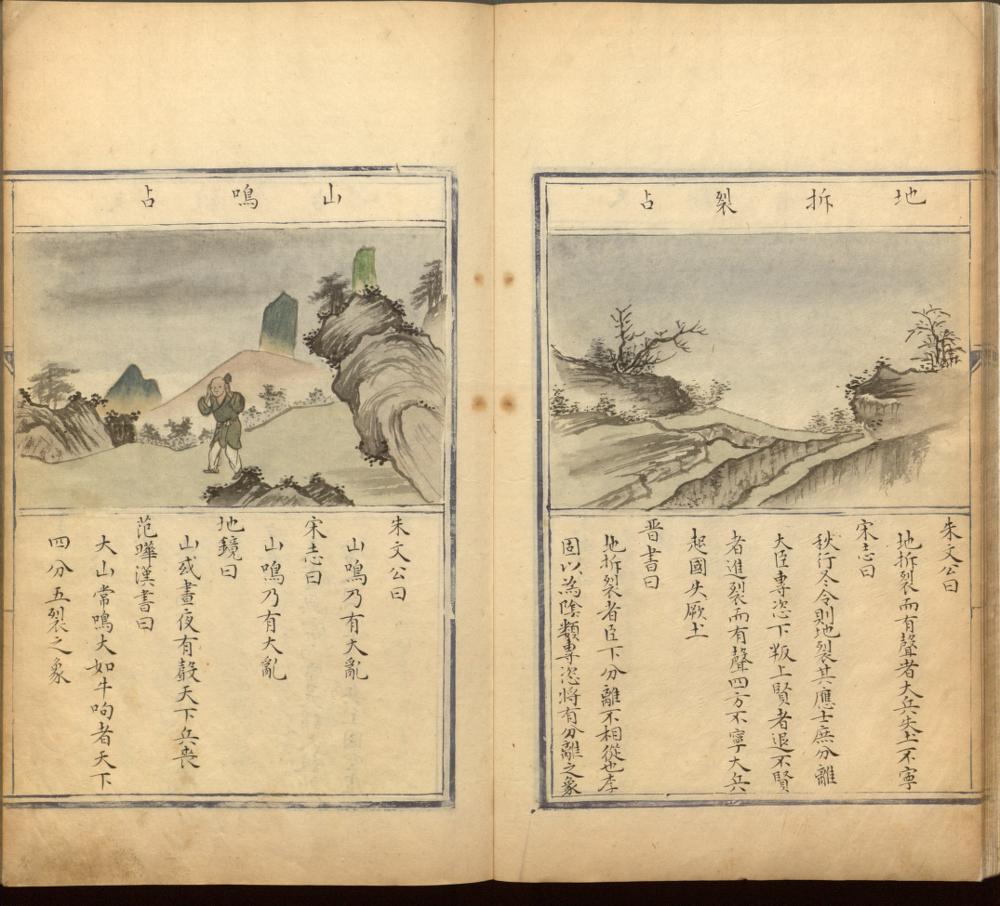 地拆裂占
朱文公曰
地拆裂而有聲者大兵失土不寧
宋志曰
秋行冬令則地裂其應士庶分離
大臣專恣下叛上賢者退不賢
者進裂而有聲四方不寧大兵
起國失厥土
晋書曰
地拆裂者臣下分離不相從也李
固以為陰類專恣將有分離之象
山鳴占
朱文公曰
山鳴乃有大亂
宋志曰
山鳴乃有大亂
地鏡曰
山或晝夜有聲天下兵喪
范曄漢書曰
大山常鳴大如牛呴者天下
四分五裂之象